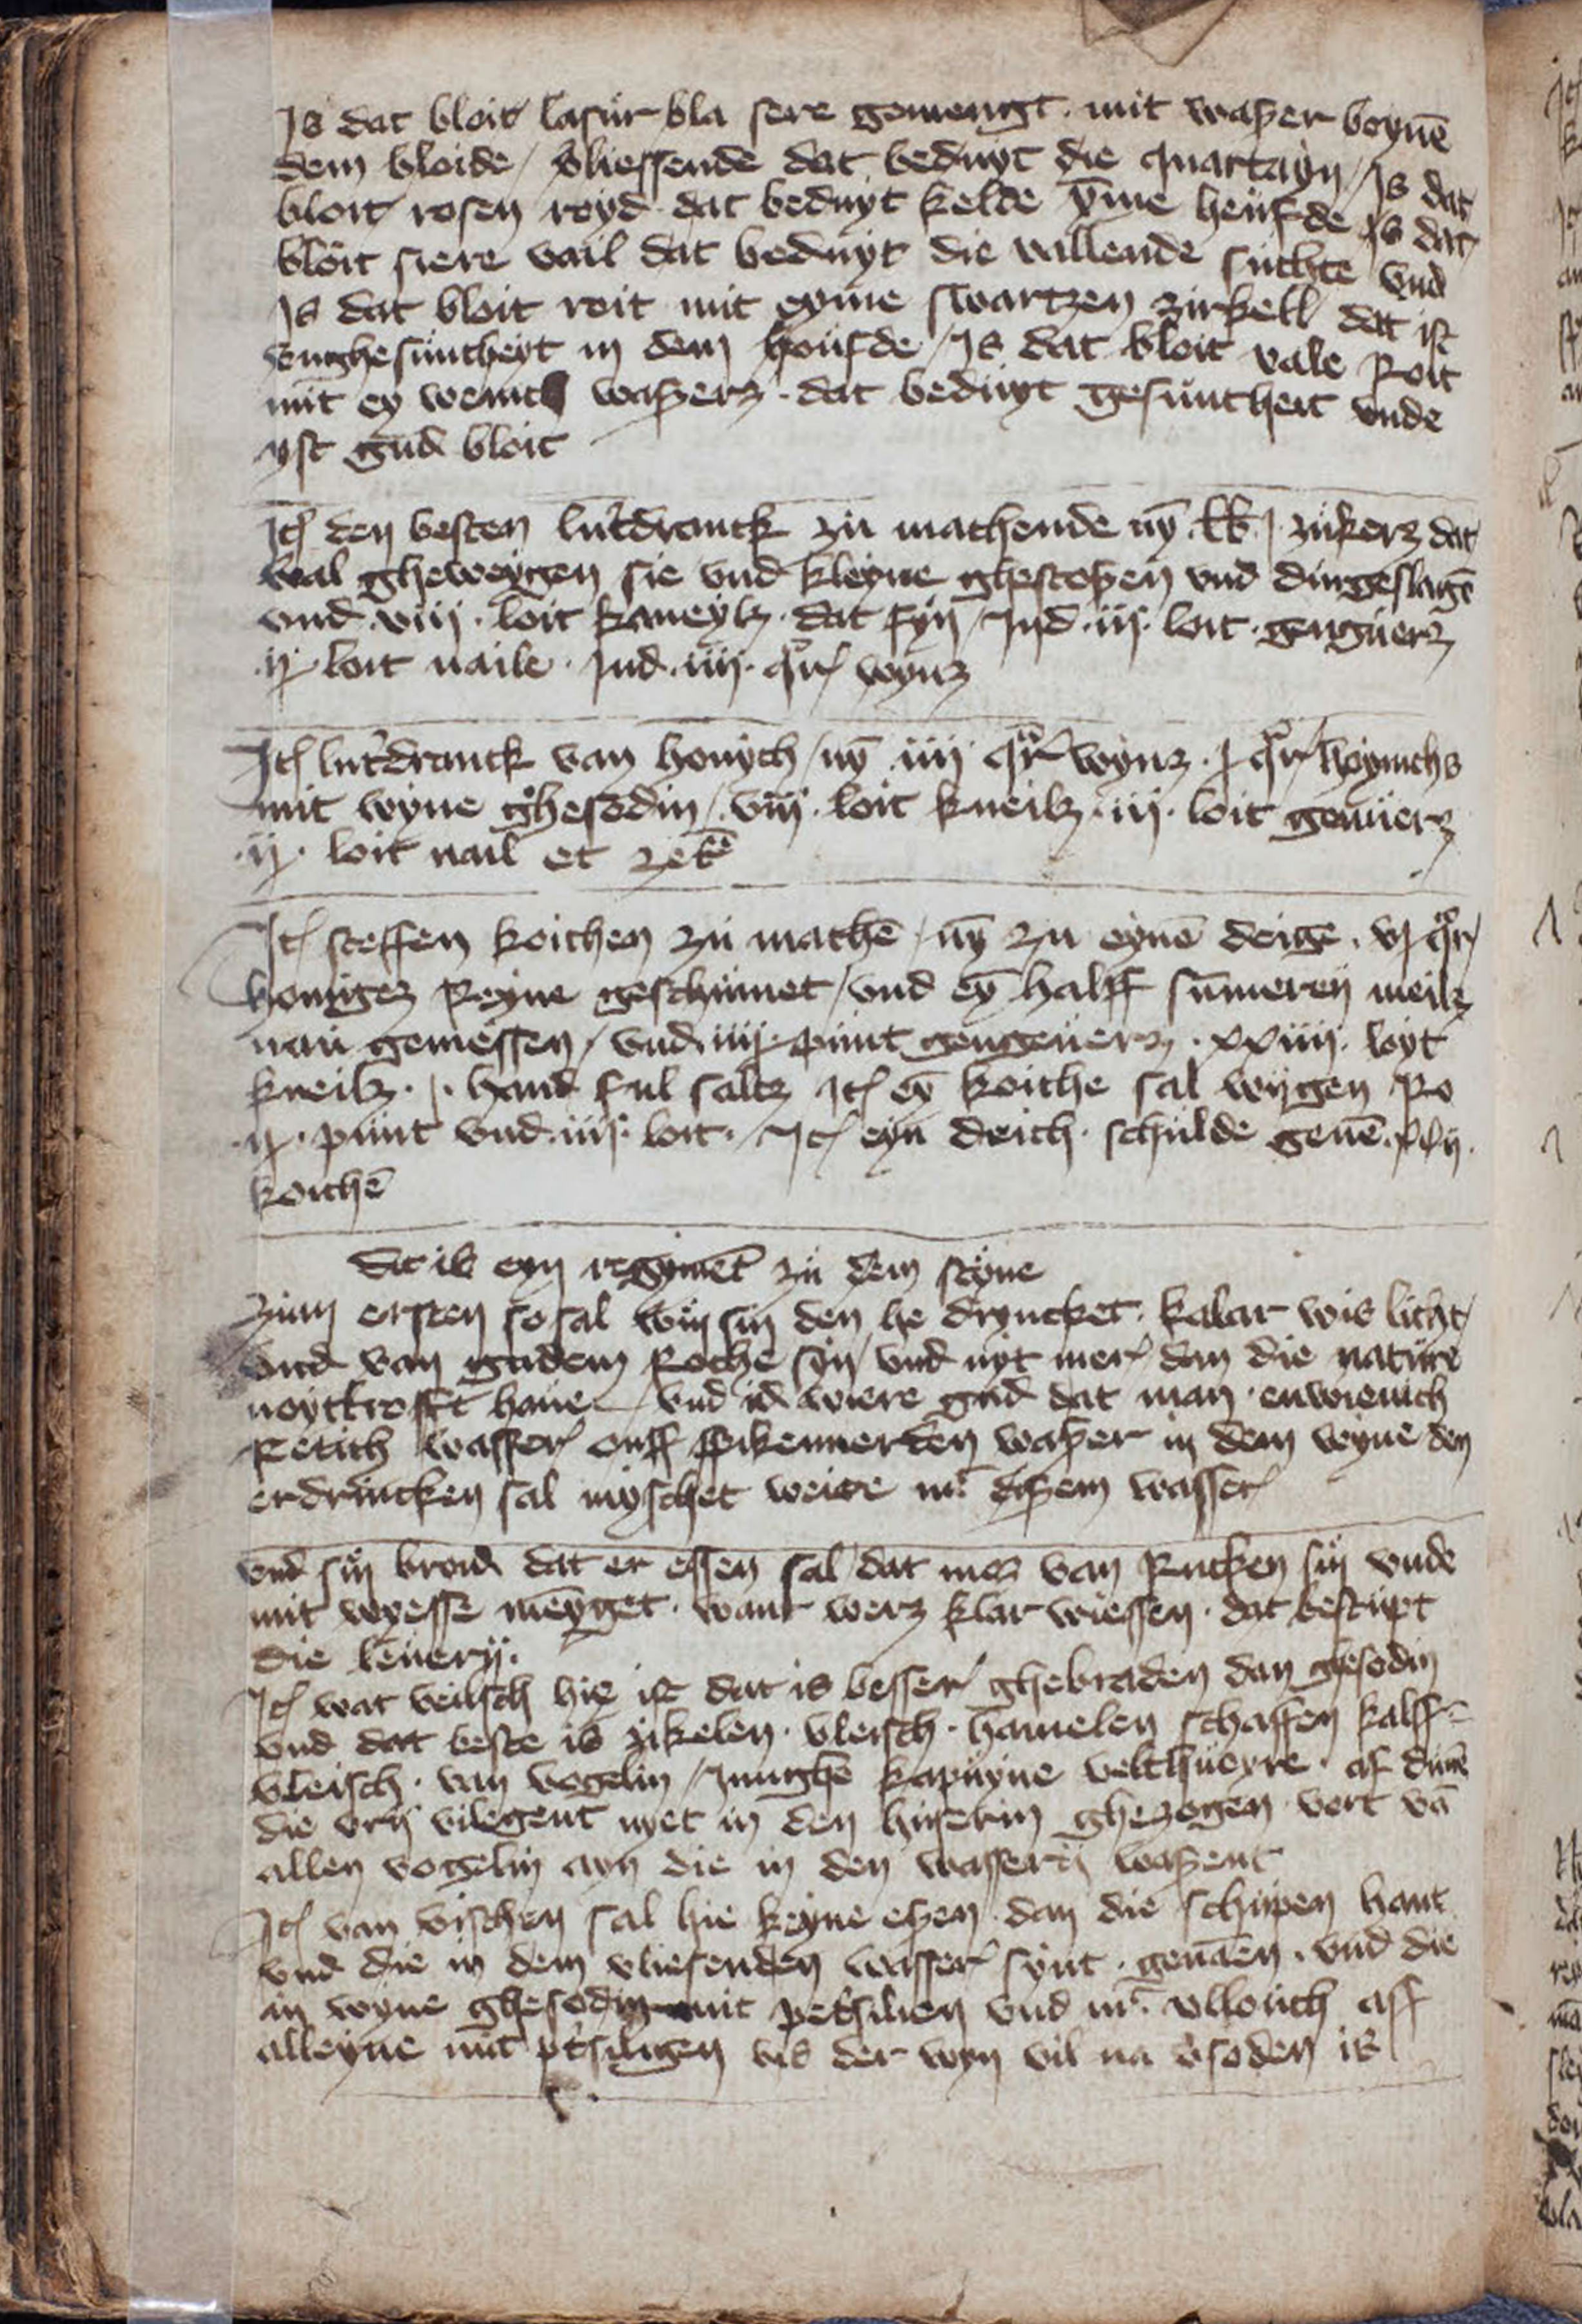 Is dat bloit lasur bla sere gemengt mit waßer boynē
dem bloide / vliessende dat beduyt die quartayn / Is dat
bloit rosen royd dat beduyt kelde ȳme heufde Is dat
bloit siere vail dat beduyt die vallende suchte vnd
Is dat bloit roit mit eyme swartzen zirkell dat ist
vnghesuntheyt in dem houfde / Is dat bloit vale Roit
mit ey wenich waßerz · dat beduyt gesuntheit vnde
yst gud bloit
Itē den besten lutdranck zu machende nȳ lb j zukerz dat
wal gheweygen sie vnd kleyne ghestoßen vnd durgeslagē
vnd viij · loit kaneylz · dat fyn / Ind · iij · loit · genguerz
ij loit naile · Ind · iiij · qr wynz
Itē lutdranck van honych / nȳ iiij qr wynz · j qr hoynichs
mit wyne ghesodin / viij · loit kneilz · iij · loit genuerz
· ij · loit nail et zetē
Itē steffen koichen zu machē / nȳ zu eynē deige · vj qr
honigez Reyne geschumet / vnd eȳ halff sūmeren meilz
nau gemessen / vnd iiij punt gengeuerz · xxiiij · loyt
kneilz · j · hand ful saltz Itē eȳ koiche sal wygen Ro
ij · punt vnd · iij · loit · / Itē eyn deich · schulde geuē ·
koichē
Dit is eyn regimēt zu dem steyne
Zum ersten so sal wyn sin den he dryncket · kalar wis licht /
vnd van gudem Roche syn / vnd nyt mer dan die nature
noyttrofft haue / vnd id wiere gud dat man · enwienich
Retich wasser off spikennerden waßer in dem weyne den
erdrincken sal myschet weire mit dißem wasser
vnd sin broid dat er essen sal / dat mos van Rucken sin vnde
mit weysse mēyget · want werz klar wiessen · dat bestupt
die leuerij ·
Itē wat veilsch hie ist dat is besser ghebraden dan ghesodin
vnd dat beste is zikelen · vleisch · hamelen schaffen kalff=
vleisch · van vogelin / Junghē kapuyne velthueyre · af duuē
die vrij vilegent nyet in den huserin ghezogen vort vā
allen vogelin ayn die in den wasserij waßent
Itē van vischen sal hie keyne eßen · dan die schupen hant
vnd die in dem vliesenden wasser synt · genāen · vnd die
in wyne ghesodin mit petsilien vnd mit vllouch aff
alleyne mit petsiligen bis der wyn vil na vsoden is